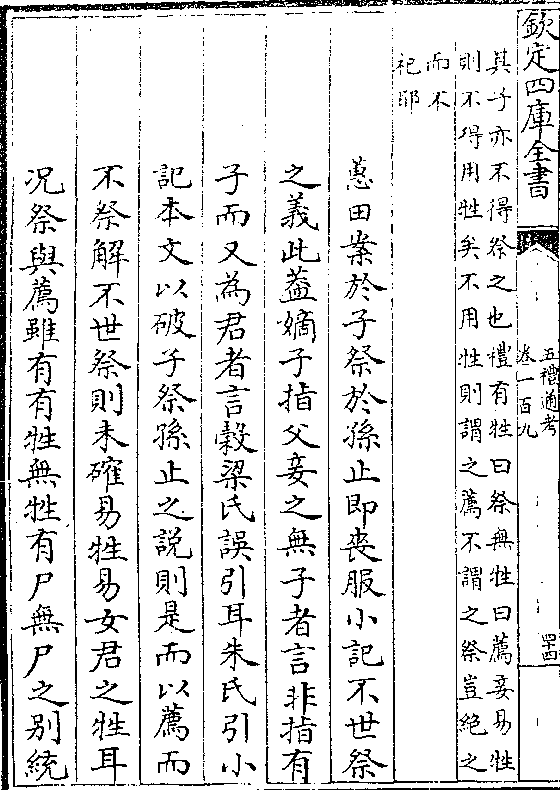 欽定四庫全書
五禮通考
卷一百九
四十四
其子亦不得祭之也禮有牲曰祭無牲曰薦妾易牲
則不得用牲矣不用牲則謂之薦不謂之祭豈絶之
而不
祀耶
蕙田案於子祭於孫止即喪服小記不世祭
之義此蓋嫡子指父妾之無子者言非指有
子而又為君者言穀梁氏誤引耳朱氏引小
記本文以破子祭孫止之説則是而以薦而
不祭解不世祭則未確易牲易女君之牲耳
况祭與薦雖有有牲無牲有尸無尸之别統